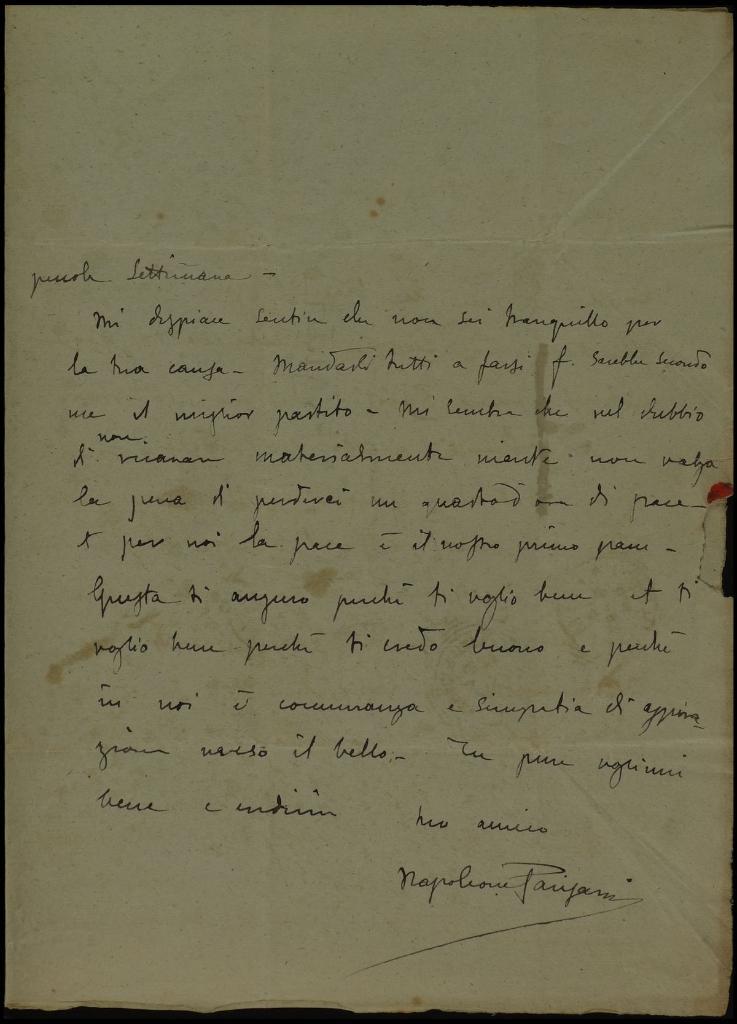 settimana –
Mi dispiace sentire che non sei tranquillo per
la tua causa – Mandarli tutti a farsi f. sarebbe secondo
me il miglior partito – Mi sembra che nel dubbio
di non ricavare materialmente niente non valga
la pena di perderci un quarto d'ora di pace –
E per noi la pace è il nostro primo pane –
Questa ti auguro perché ti voglio bene et ti
voglio bene perché ti credo buono e perché
in noi è comunanza e simpatia di aspira-
zione verso il bello – Tu pure vogliimi
bene e credimi
tuo amico
Napoleone Parisani